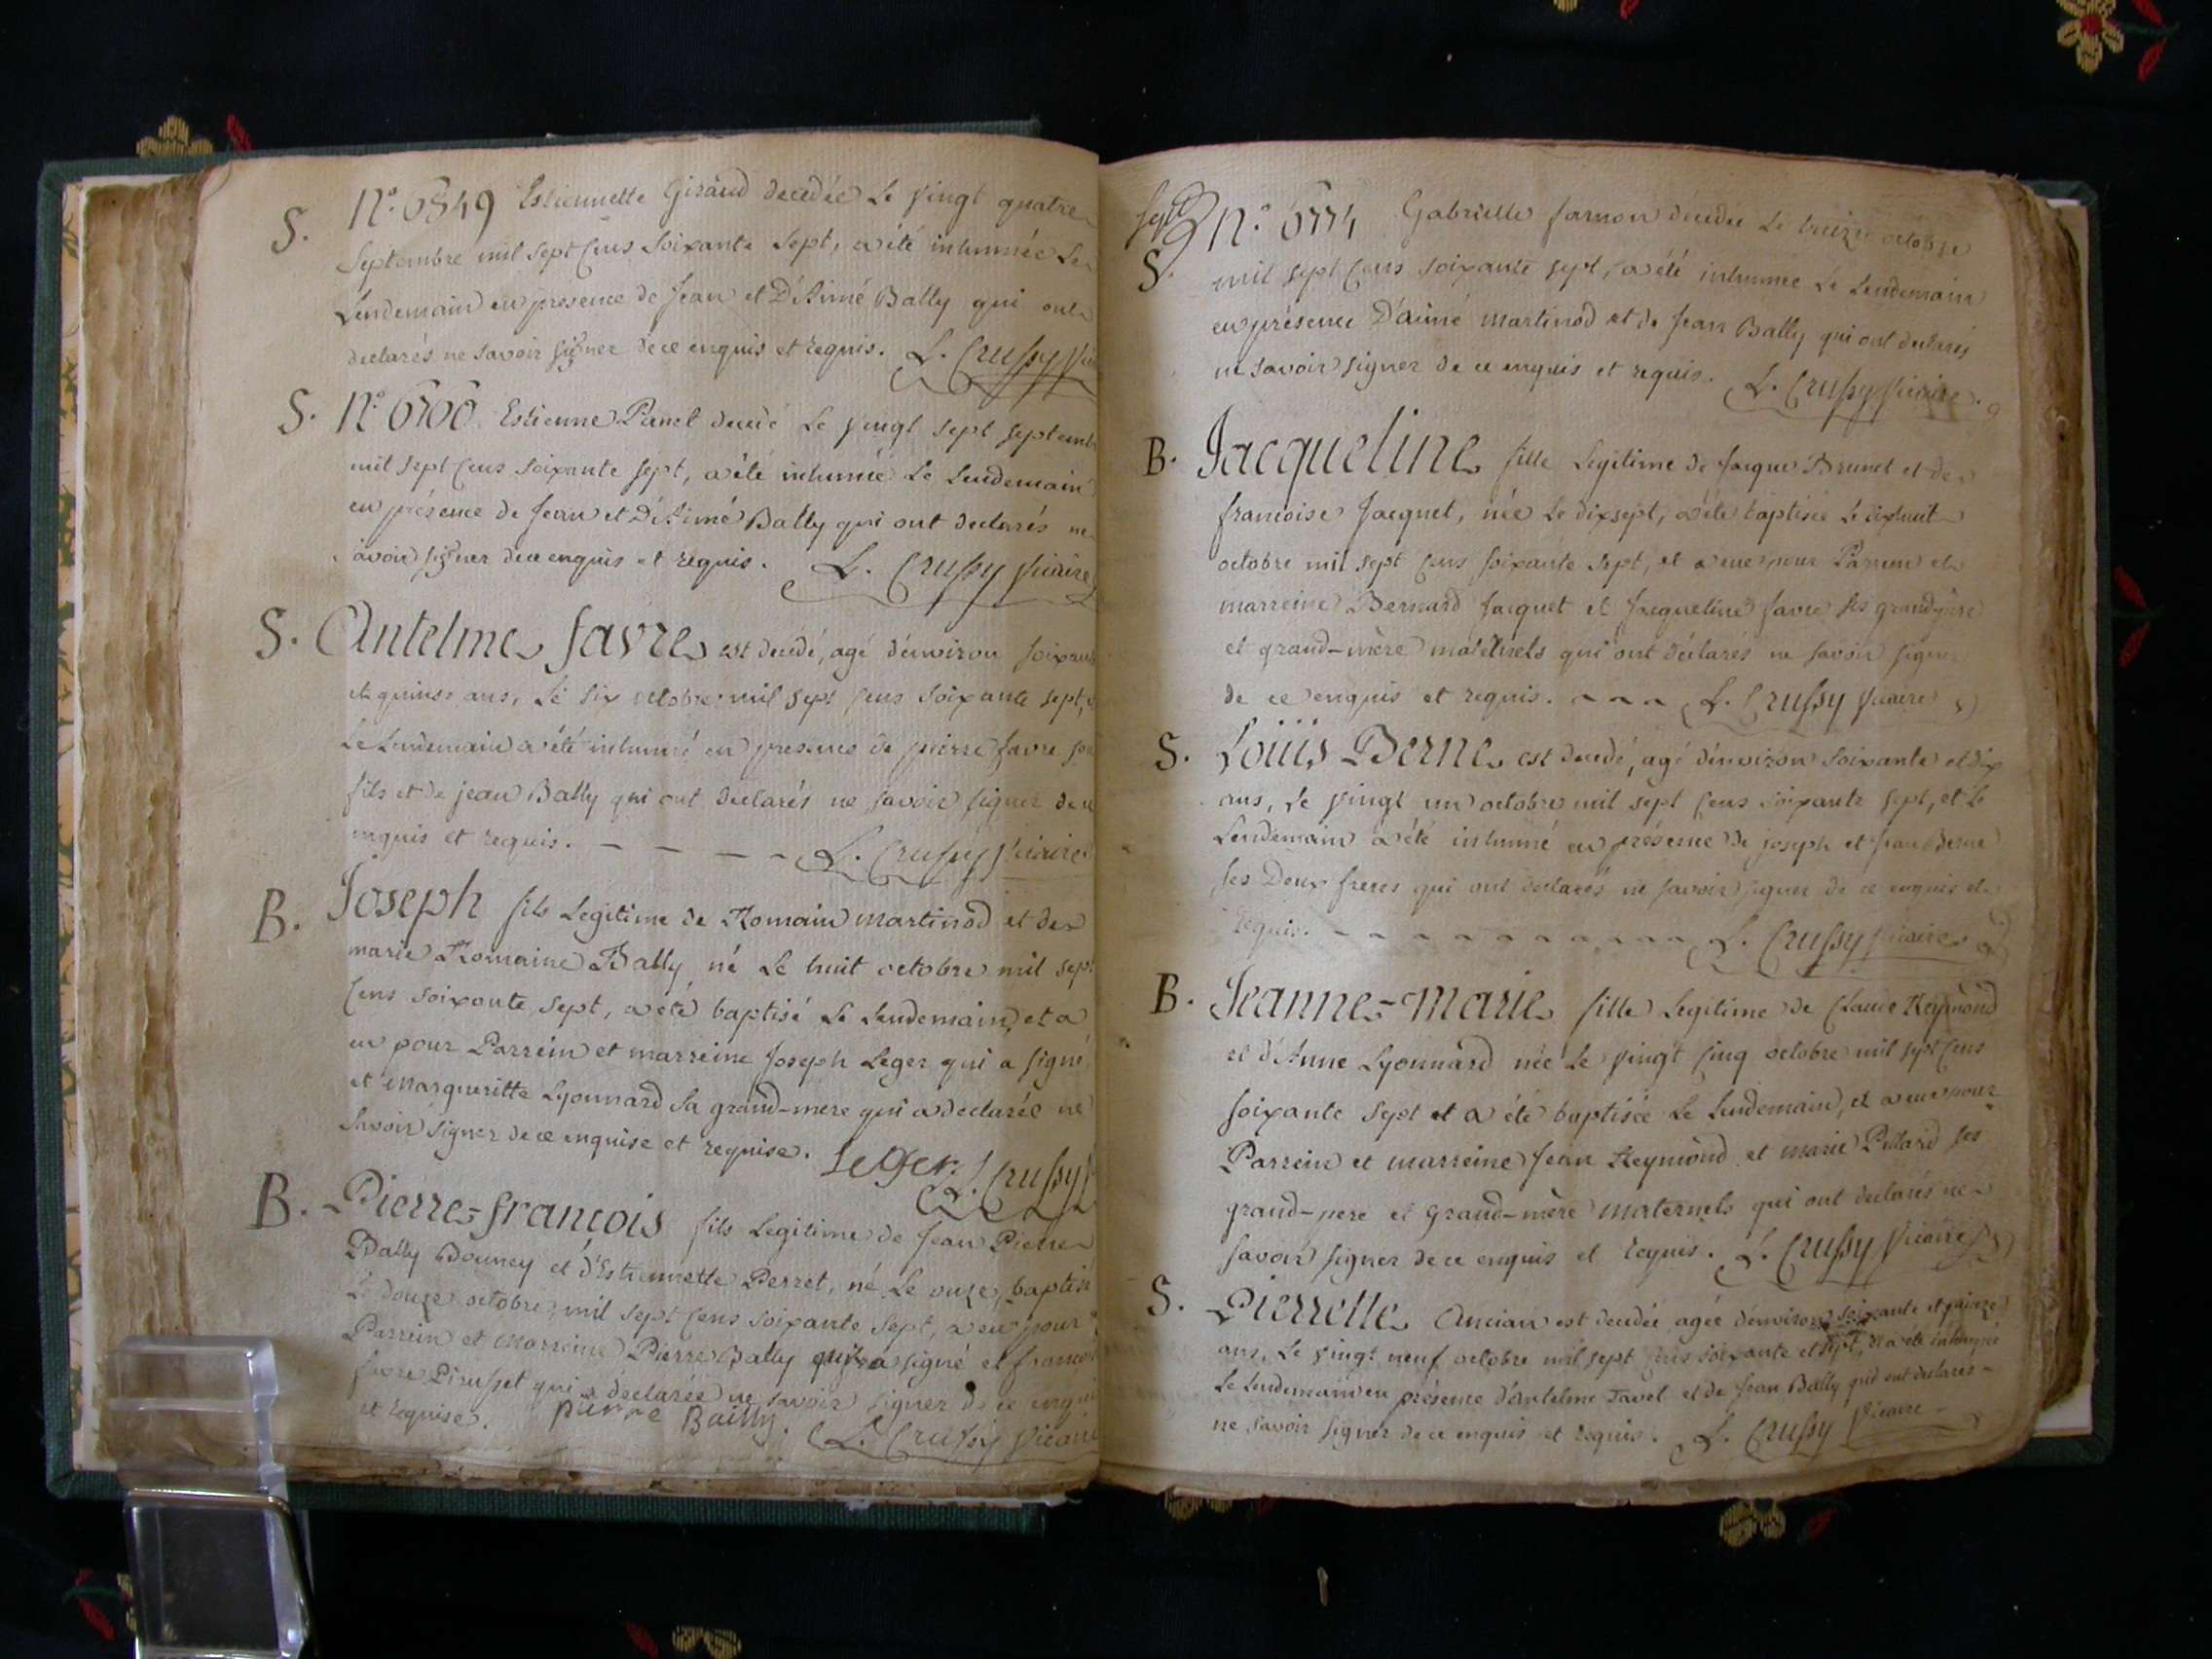 S. N.º 6849 Estiennette Giraud decedée Le vingt quatre
Septembre mil sept Cens soixante sept, a été inhumée Le
Lendemain en presence de Jean et D'Aimé Bally qui ont
declarés ne savoir signer de ce enquis et requis. L. Crussy
S. N.º 6700 Estienne Panet decedé Le vingt sept septemb
mil sept Cens soixante sept, a été inhumé Le Lendemain
en présence de Jean et D'Aimé Bally qui ont declarés ne
savoir signer de ce enquis et requis. L. Crussy vicaire
S. Antelme favre est decedé, agé d'environ soixant
et quinse ans, Le six octobre mil sept Cens soixante sept, e
Le Lendemain a été inhumé en presence de pierre favre so
fils et de jean Bally qui ont declarés ne savoir signer de ce
enquis et requis. L. Crussy vicaire
B. Joseph fils Legitime de Romain martinod et de
marie Romaine Bally né Le huit octobre mil sept
Cens soixante sept, a été baptisé Le Lendemain, et a
eu pour Parrein et marreine Joseph Leger qui a signé,
et Margueritte Lyonnard sa grand-mere qui a declarée ne
Savoir signer de ce enquise et requise. Leger. L. Crussy
B. Pierre-francois fils Legitime de Jean Pierre
Bally Douney et d'Estiennette Perret, né Le onze, baptisé
Le douze octobre, mil sept Cens soixante sept, a eu pour
Parrein et Marreine Pierre Bally qui a signé et francoi
favre Pirusset qui a declarée ne savoir signer de ce enqui
et requise. pierre Bailly. L. Crussy vicaire
Sept
S. N.º 6774 Gabrielle farnon decedée Le treize octobre
mil sept Cens soixante sept, a été inhumée Le Lendemain
en présence D'aimé martinod et de Jean Bally qui ont declarés
ne savoir signer de ce enquis et requis. L. Crussy vicaire.
B. Jacqueline fille Legitime de Jacque Brunet et de
francoise Jacquet, née Le dixsept, a été baptisée Le dixhuit
octobre mil sept Cens soixante sept, et a eue pour Parrein et
marreine Bernard Jacquet et Jacqueline favre ses grand-père
et grand-mère maternels qui ont déclarés ne savoir signer
de ce enquis et requis. L. Crussy vicaire
S. Loüis Berne est decedé, agé d'environ soixante et dix
ans, Le vingt un octobre mil sept Cens soixante sept, et Le
Lendemain a été inhumé en présence de joseph et Jean Berne
ses Deux freres qui ont declarés ne savoir signer de ce enquis et
requis. L. Crussy vicaire
B. Jeanne-marie fille Legitime de Claude Reymond
et d'Anne Lyonnard née Le vingt Cinq octobre mil sept Cens
soixante sept et a été baptisée Le Lendemain, et a eue pour
Parrein et marreine Jean Reymond et marie Pillard ses
grand-pere et Grand-mère maternels qui ont declarés ne
savoir signer de ce enquis et requis. L. Crussy vicaire
S. Pierrette Ancian est decedée agée d'environ soixante et quinze
ans, Le vingt neuf octobre mil sept Cens soixante et sept, et a été inhumée
Le Lendemain en présence d'Antelme Favet et de Jean Bally qui ont declarés
ne savoir signer de ce enquis et requis. L. Crussy vicaire